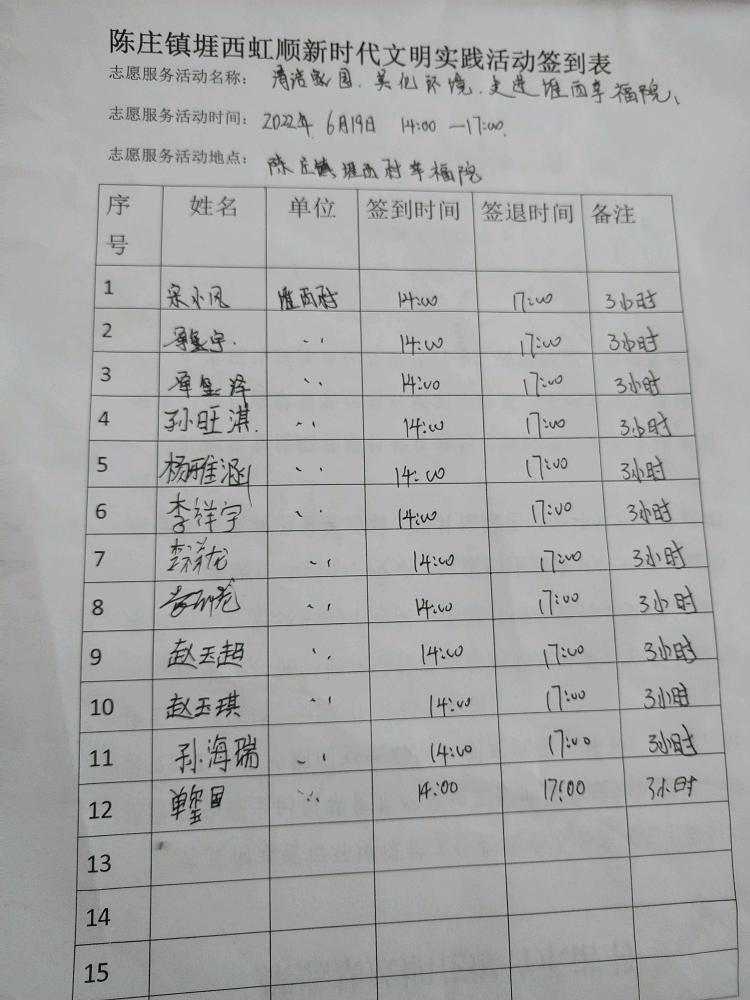 陈庄镇堐西虹顺新时代文明实践活动签到表
志愿服务活动名称： 清洁家园、美化环境、走进堐西幸福院、
志愿服务活动时间： 2022年 6月19日 14:00 —17:00
志愿服务活动地点： 陈庄镇堐西村幸福院
序号 姓名 单位 签到时间 签退时间 备注
1 宋小凤 堐西村 14:00 17:00 3小时
2 14:00 17:00 3小时
3 14:00 17:00 3小时
4 孙旺淇 14:00 17:00 3小时
5 杨雅涵 14:00 17:00 3小时
6 李祥宇 14:00 17:00 3小时
7 李祥龙 14:00 17:00 3小时
8 14:00 17:00 3小时
9 赵玉超 14:00 17:00 3小时
10 赵玉琪 14:00 17:00 3小时
11 孙海瑞 14:00 17:00 3小时
12 14:00 17:00 3小时
13
14
15